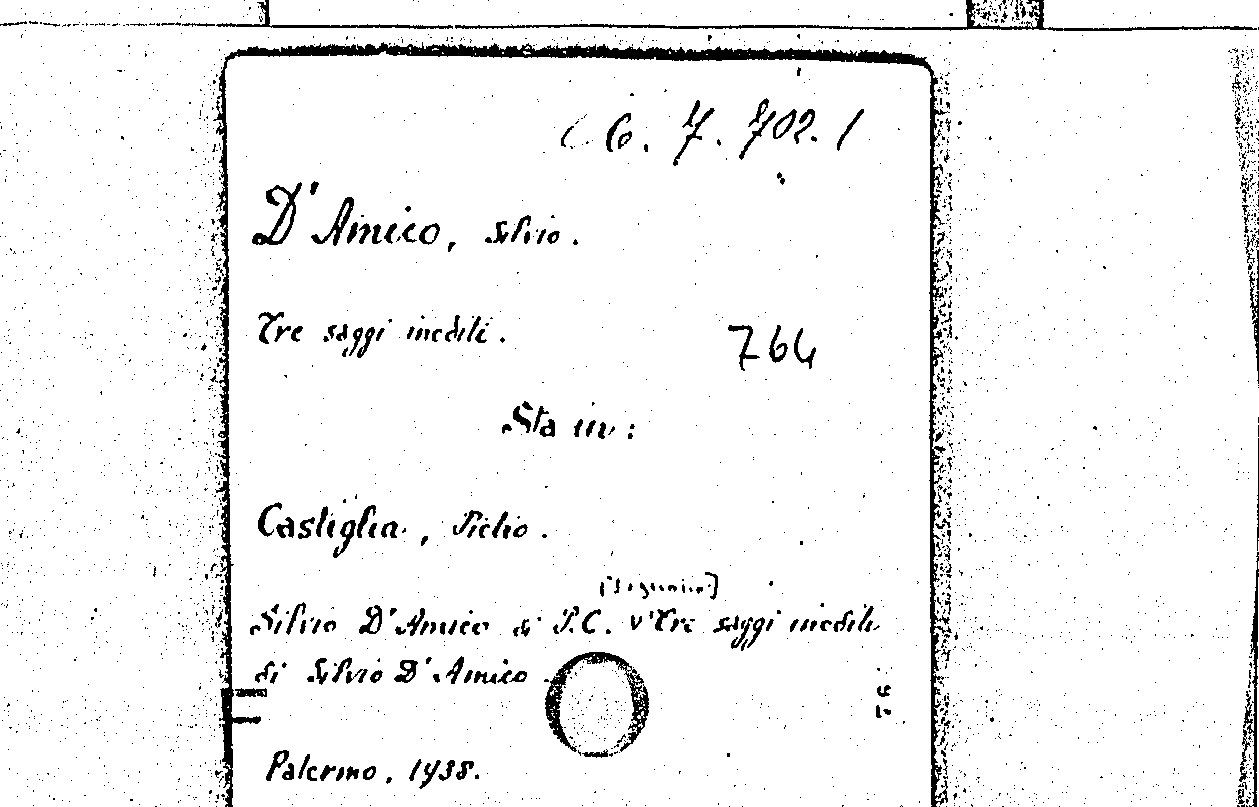 C 6. 7. 702. 1
D'Amico, Silvio.
Tre saggi inediti.
764
Sta in:
Castiglia, Piclio.
[Segunio]
Silvio D'Amico di P.C. v'Tre saggi inediti
di Silvio D'Amico.
Palermo, 1938.